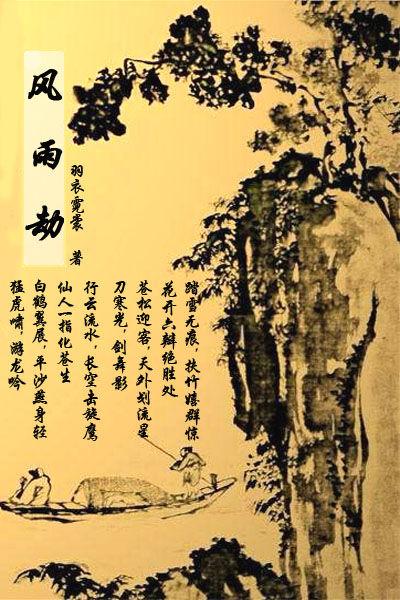 风雨劫
羽衣霓裳 著
踏雪无痕，扶竹嬉群惊
花开六瓣绝胜处
苍松迎客，天外划流星
刀寒光，剑舞影
行云流水，长空击旋鹰
仙人一指化苍生
白鹤翼展，平沙燕身轻
猛虎啸，游龙吟